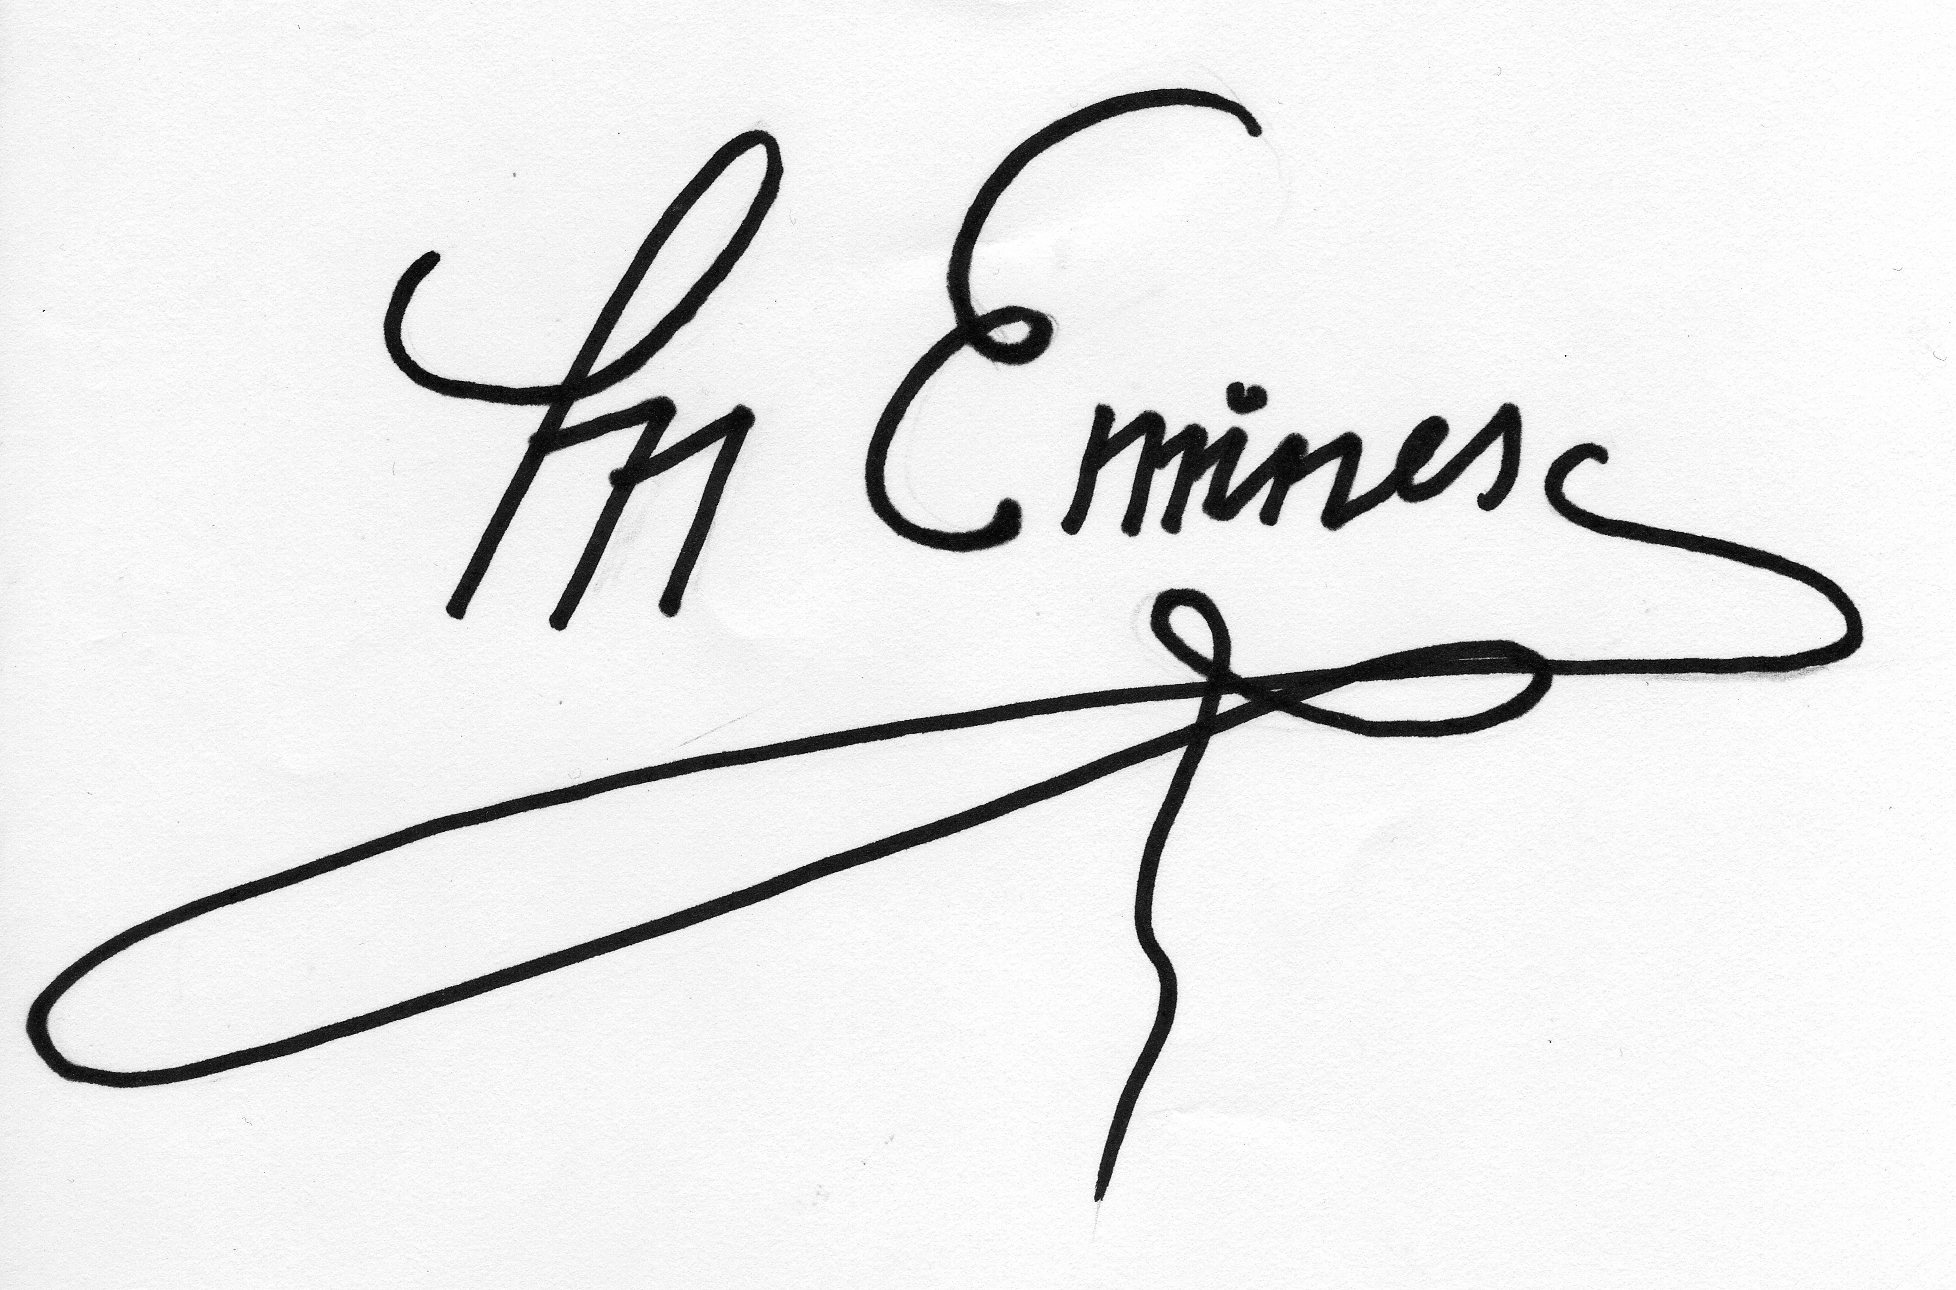 M Eminesc